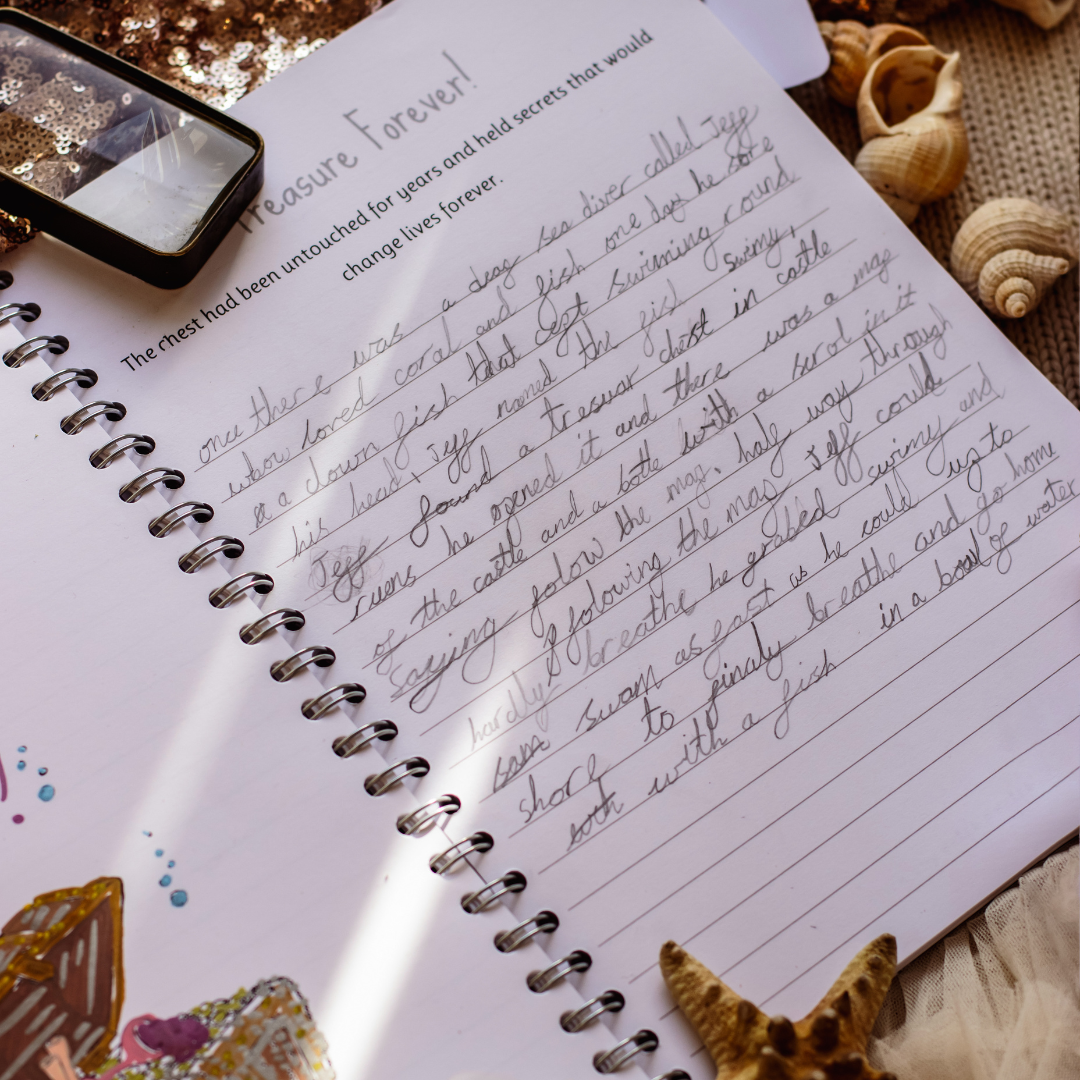 Treasure Forever!
The chest had been untouched for years and held secrets that would
change lives forever.
once there was a deap sea diver called Jeff
whow loved coral and fish one day he sore
a clown fish that cept swiming round
his head, Jeff named the fish swimy,
Jeff found a tresuar chest in castle
ruens he opened it and there was a map
of the castle and a botte with a scrol in it
saying folow the map. half way through
folowing the map Jeff could
hardly breathe he grabed swimy and
swam as fast as he could up to
shore to finaly breathe and go home
both with a fish in a bowl of water